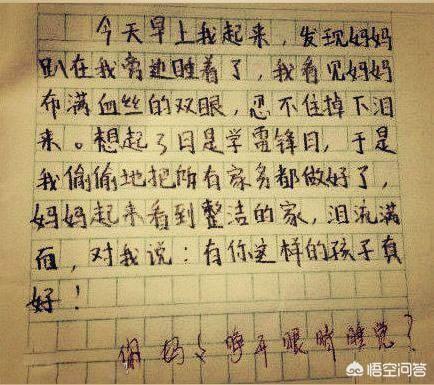 今天早上我起来，发现妈妈
趴在我旁边睡着了，我看见妈妈
布满血丝的双眼，忍不住掉下泪
来。想起了日是学雷锋日，于是
我偷偷地把所有家务都做好了，
妈妈起来看到整洁的家，泪流满
面，对我说：有你这样的孩子真
好！
你妈妈睁开眼睛睡觉？
悟空问答